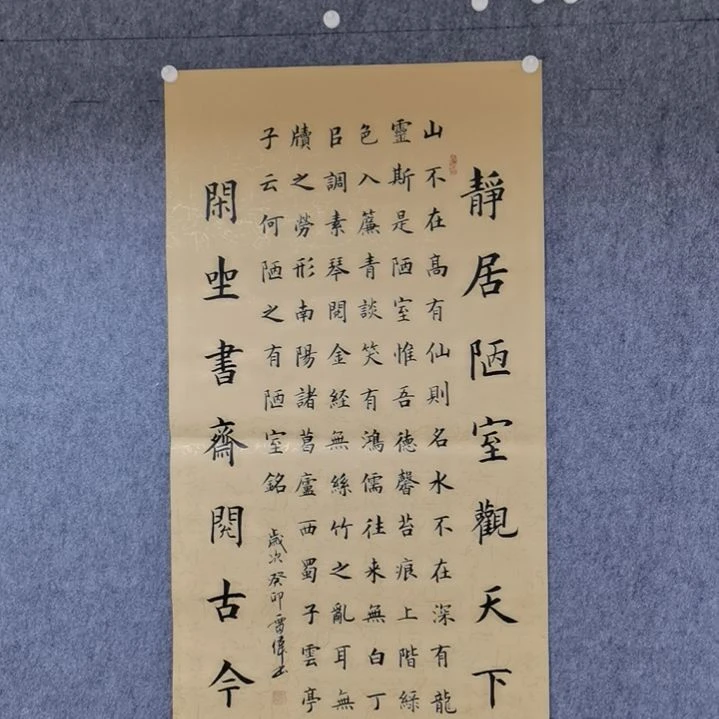 靜居陋室觀天下
山不在髙有仙則名水不在深有龍
靈斯是陋室惟吾德馨苔痕上階緑
色入簾青談笑有鴻儒往来無白丁
㠯調素琴閱金経無絲竹之亂耳無
牘之勞形南陽諸葛廬西蜀子雲亭
子云何陋之有陋室銘
歲次癸卯雷偉书
閑坐書齋閱古今